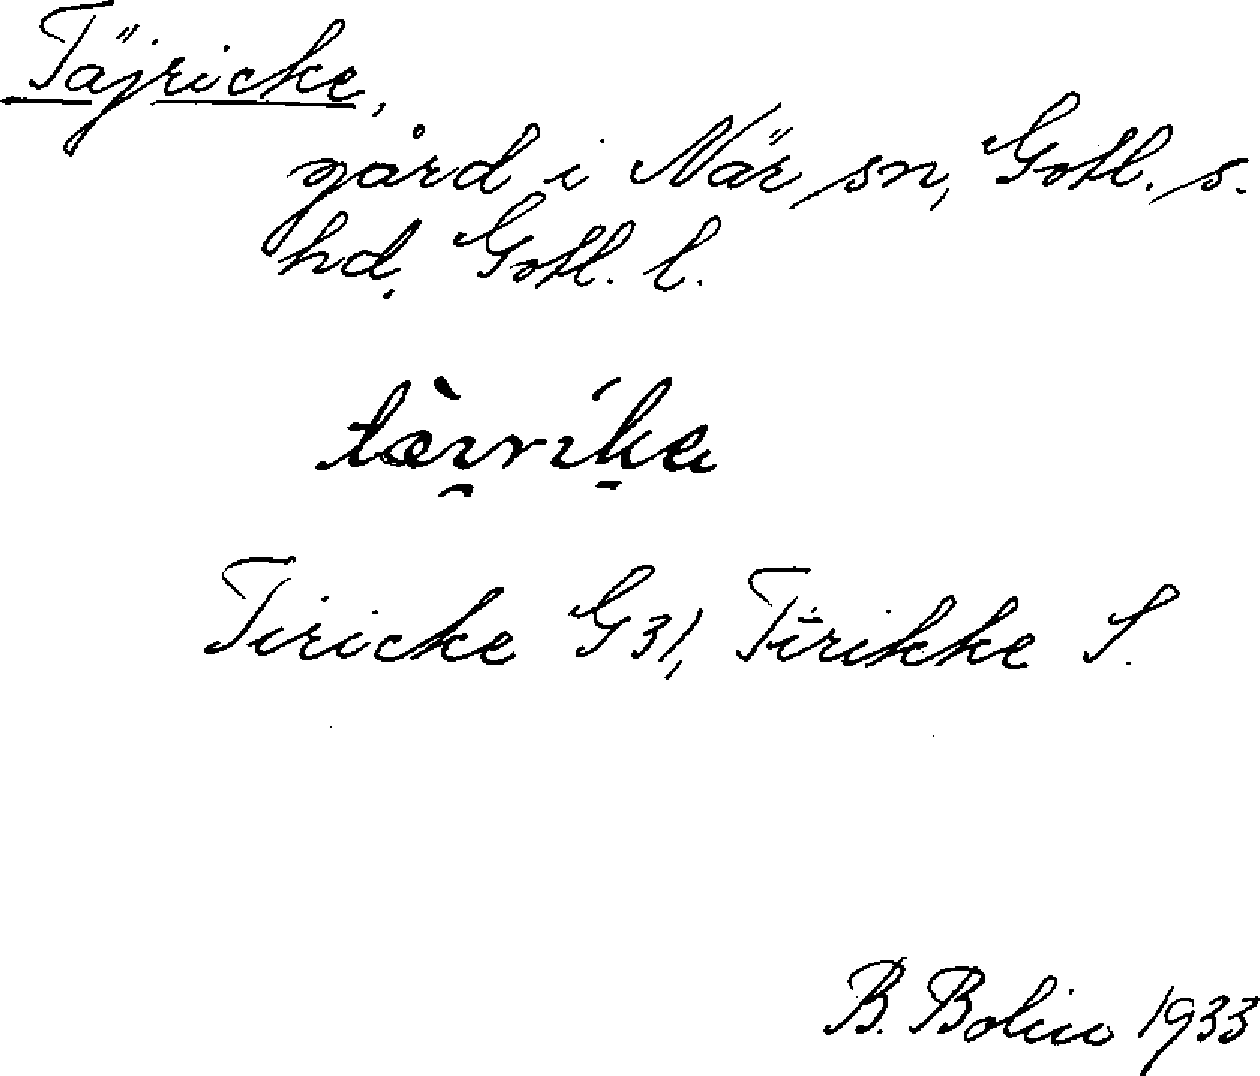 Täjricke,
gård i När sn, Gotl. s.
hd, Gotl. l.
tæ̀i̯rika
Tiricke G31, Tirikke S.
B. Bolin 1933